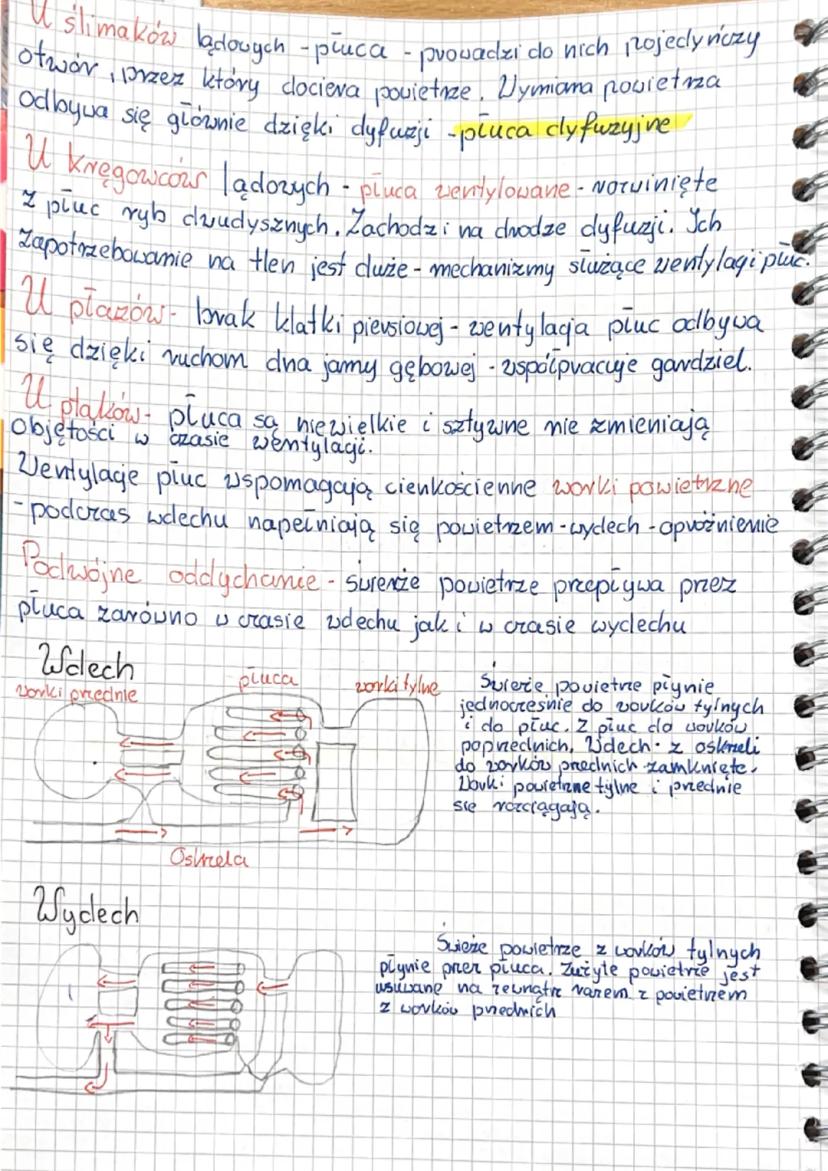 U ślimaków lądowych - płuca - prowadzi do nich pojedyńczy
otwór, przez który dociera powietrze. Wymiana powietrza
odbywa się głównie dzięki dyfuzji - płuca dyfuzyjne
U kręgowców lądowych - płuca wentylowane - rozwinięte
z płuc ryb dwudysznych. Zachodzi na drodze dyfuzji. Ich
zapotrzebowanie na tlen jest duże - mechanizmy służące wentylagi płuc.
U płazów - brak klatki piersiowej - wentylacja płuc odbywa
się dzięki ruchom dna jamy gębowej - współpracuje gardziel.
U ptaków - płuca są niewielkie i sztywne nie zmieniają
objętości w czasie wentylagi.
Wentylacje płuc wspomagają cienkościenne worki powietrzne
- podczas wdechu napełniają się powietrzem - wydech - opróżnienie
Podwójne oddychanie - świeże powietrze przepływa przez
płuca zarówno w czasie wdechu jak i w czasie wydechu
Wdech
worki przednie płuca worki tylne
Świeże powietrze płynie
jednocześnie do worków tylnych
i do płuc. Z płuc do worków
poprzednich. Wdech: z oskrzeli
do worków przednich zamknięte.
Worki powietrzne tylne i przednie
się rozciągają.
Oskrzela
Wydech
Świeże powietrze z worków tylnych
płynie przez płuca. Zużyte powietrze jest
usuwane na zewnątrz razem z powietrzem
z worków przednich